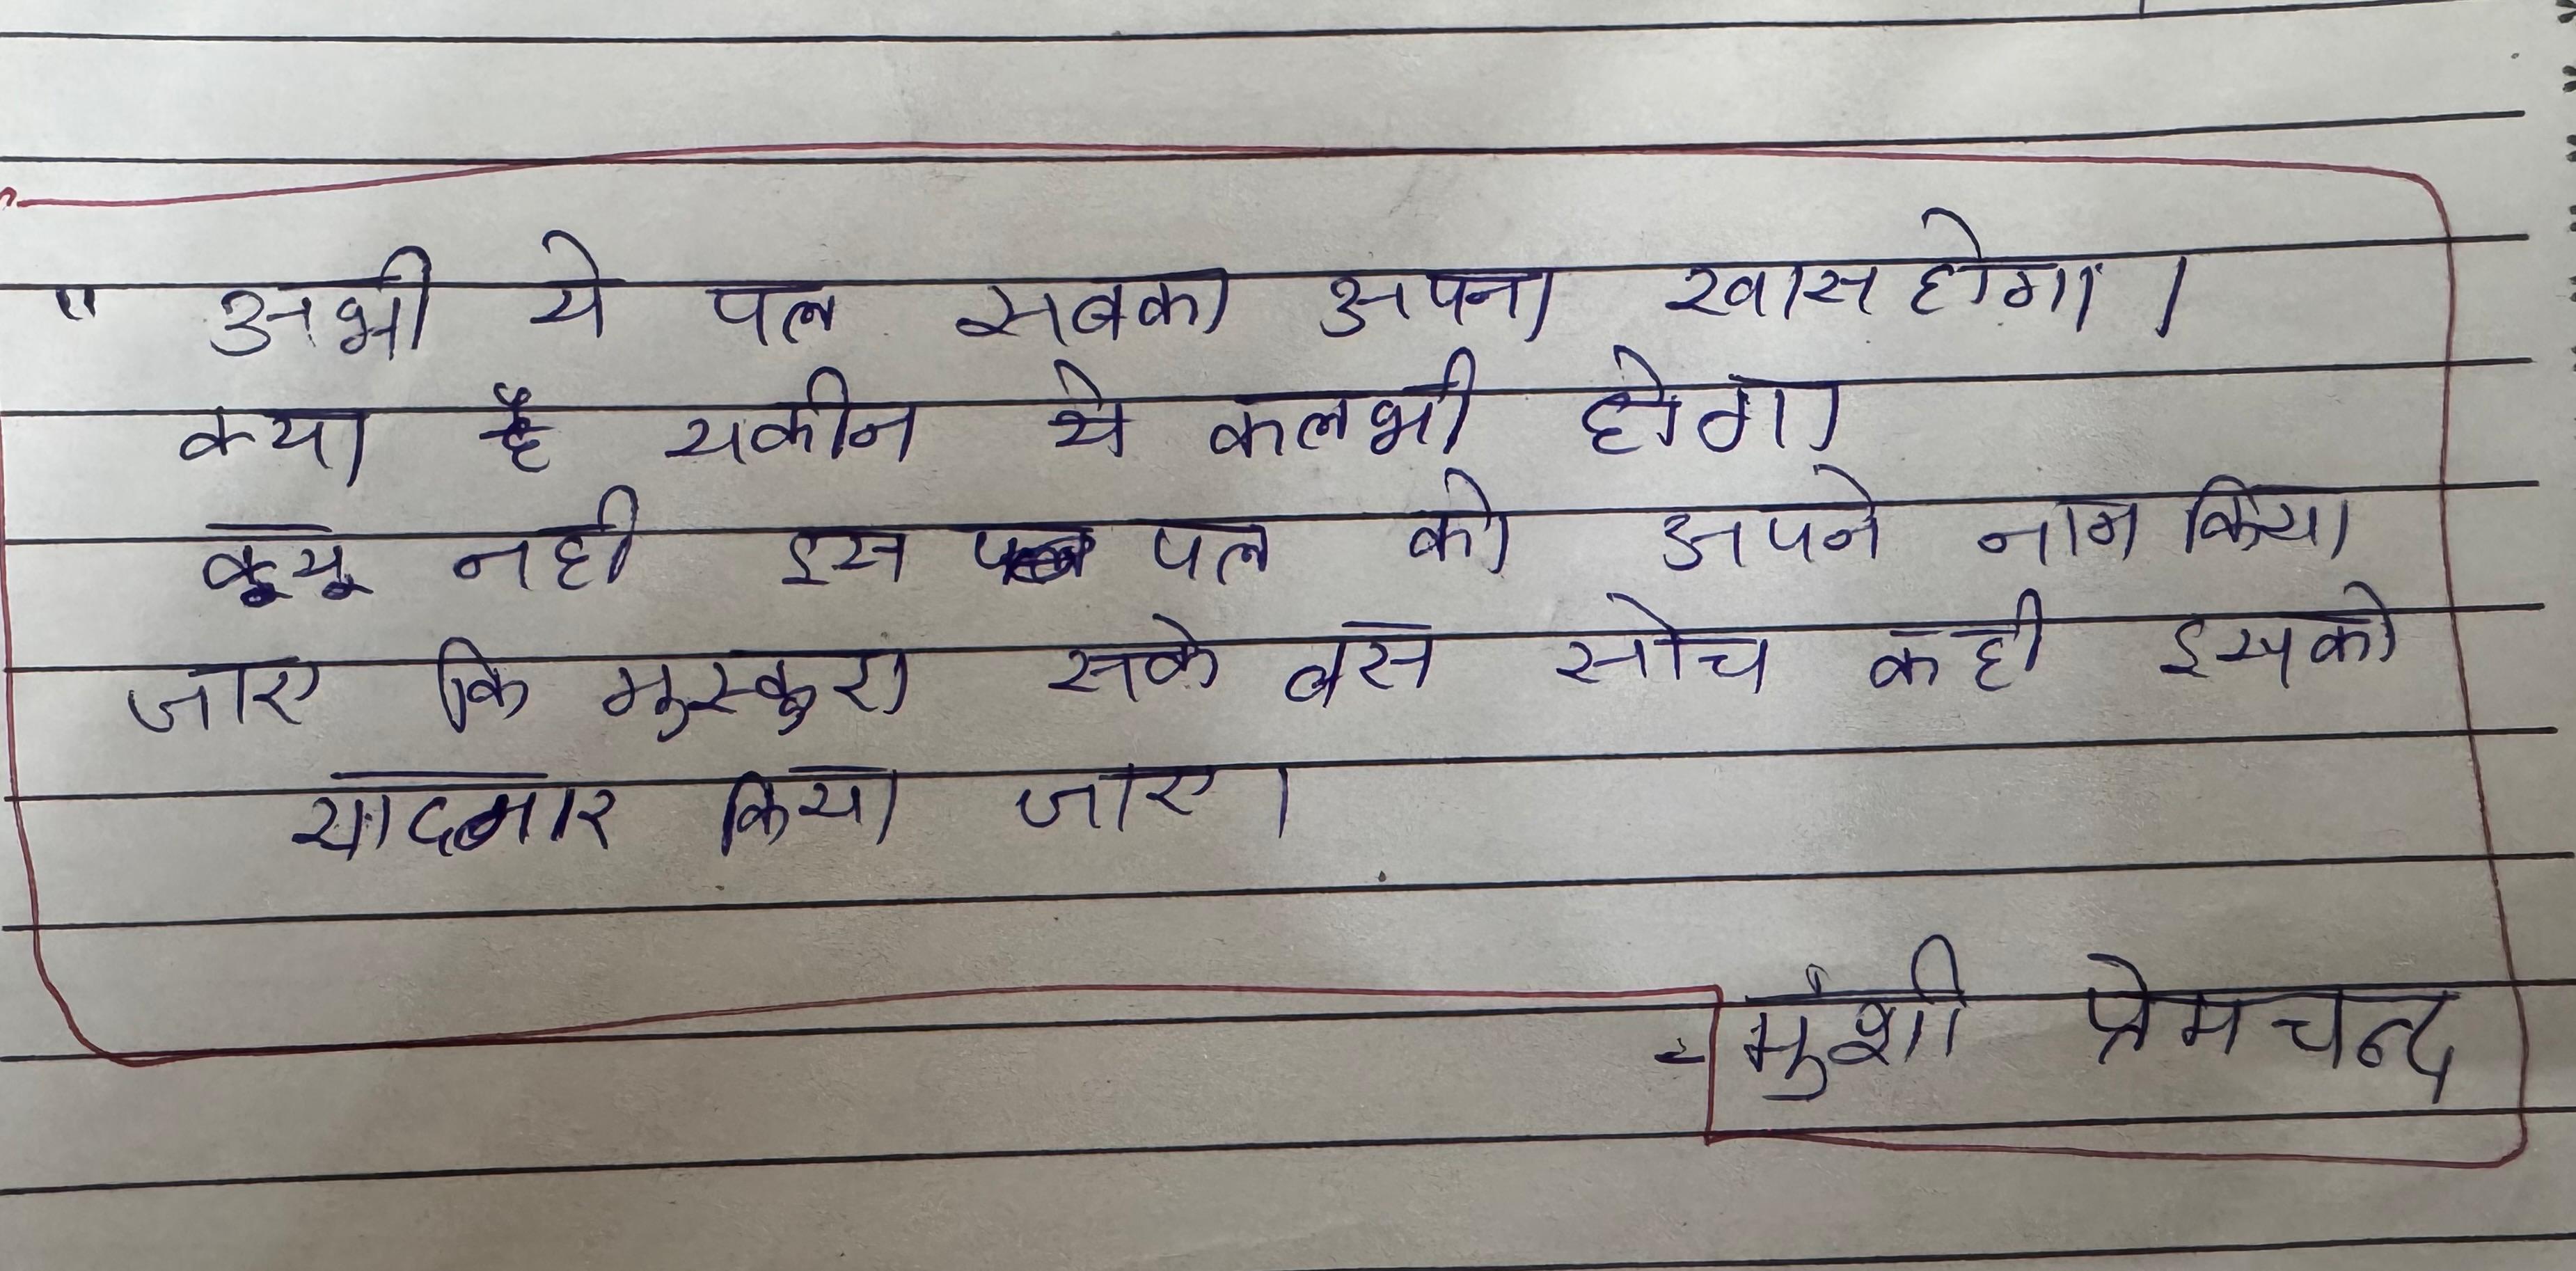 " अभी ये पल सबका अपना खास होगा।
क्या है यकीन ये कलभी होगा
क्यू नही इस पल को अपने नाम किया
जाए कि मुस्कुरा सके बस सोच कही इसको
यादगार किया जाए।
- मुंशी प्रेमचन्द